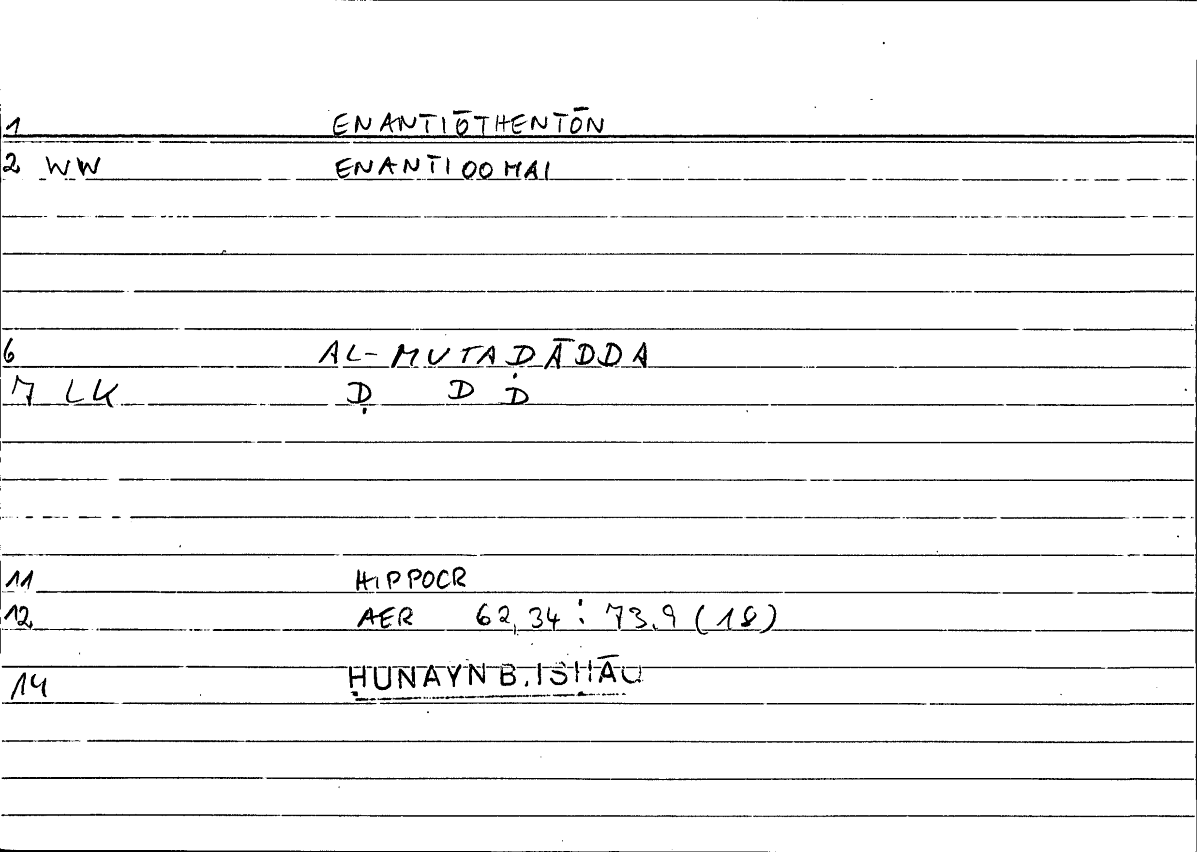 1 ENANTIŌTHENTŌN
2 WW ENANTIOOMAI
6 AL-MUTADĀDDA
7 LK Ḍ D Ḋ
11 HIPPOCR
12 AER 62,34 : 73.9 (18)
14 ḤUNAYN B. ISḤĀQ